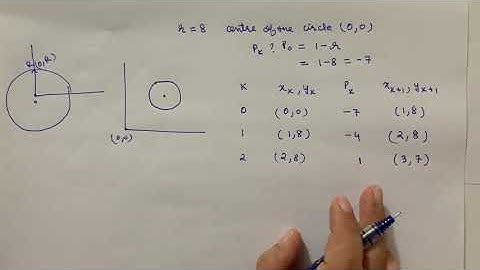 r = 8 centre of the circle (0,0)
Pk ? P0 = 1 - r
= 1 - 8 = -7
(0,r)
K xk, yk Pk xk+1, yk+1
0 (0,0) -7 (1,8)
1 (1,8) -4 (2,8)
2 (2,8) 1 (3,7)
(0,0)